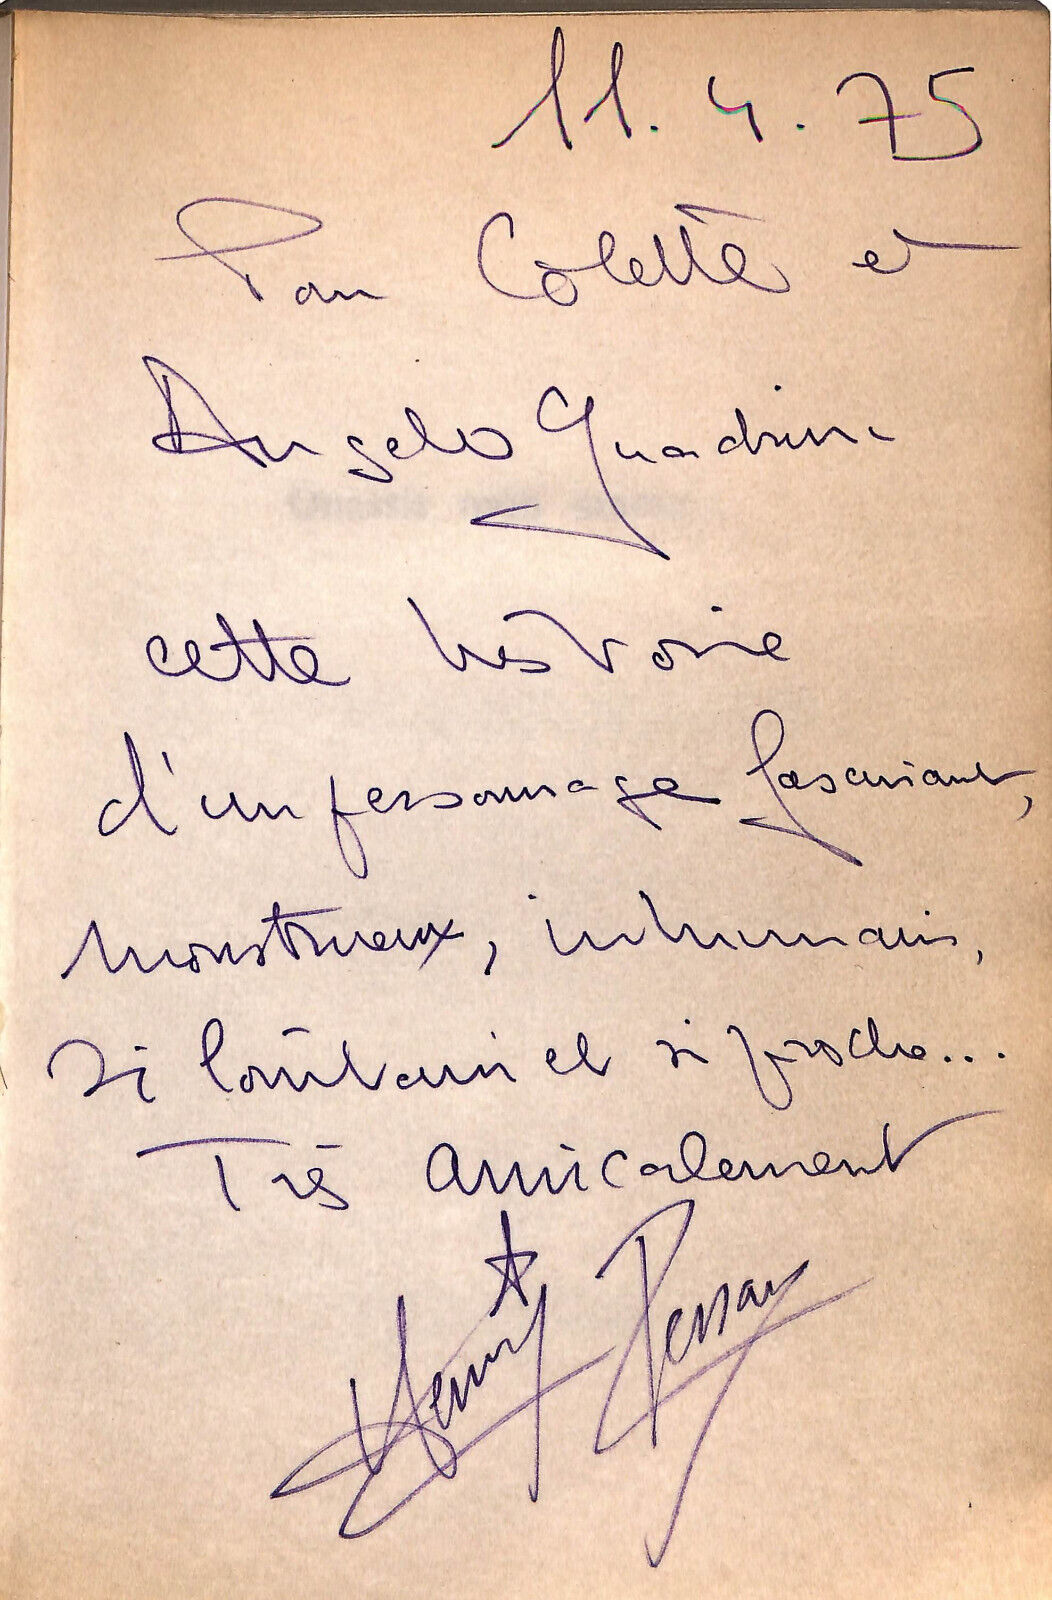 11.4.75
Pour Colette et
Angelo Quadrini
cette histoire
d'un personnage fascinant,
monstrueux, inhumain,
si lointain et si proche...
Très amicalement
Henry